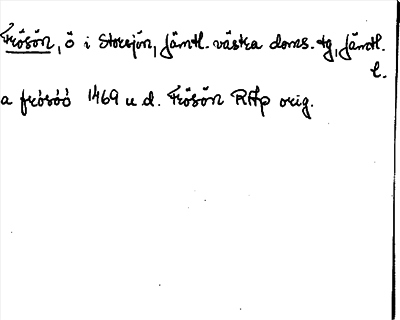 Frösön, ö i Storsjön, Jämtl. västra doms. tg, Jämtl.
l.
a frösöö 1469 u d. Frösön RAp orig.